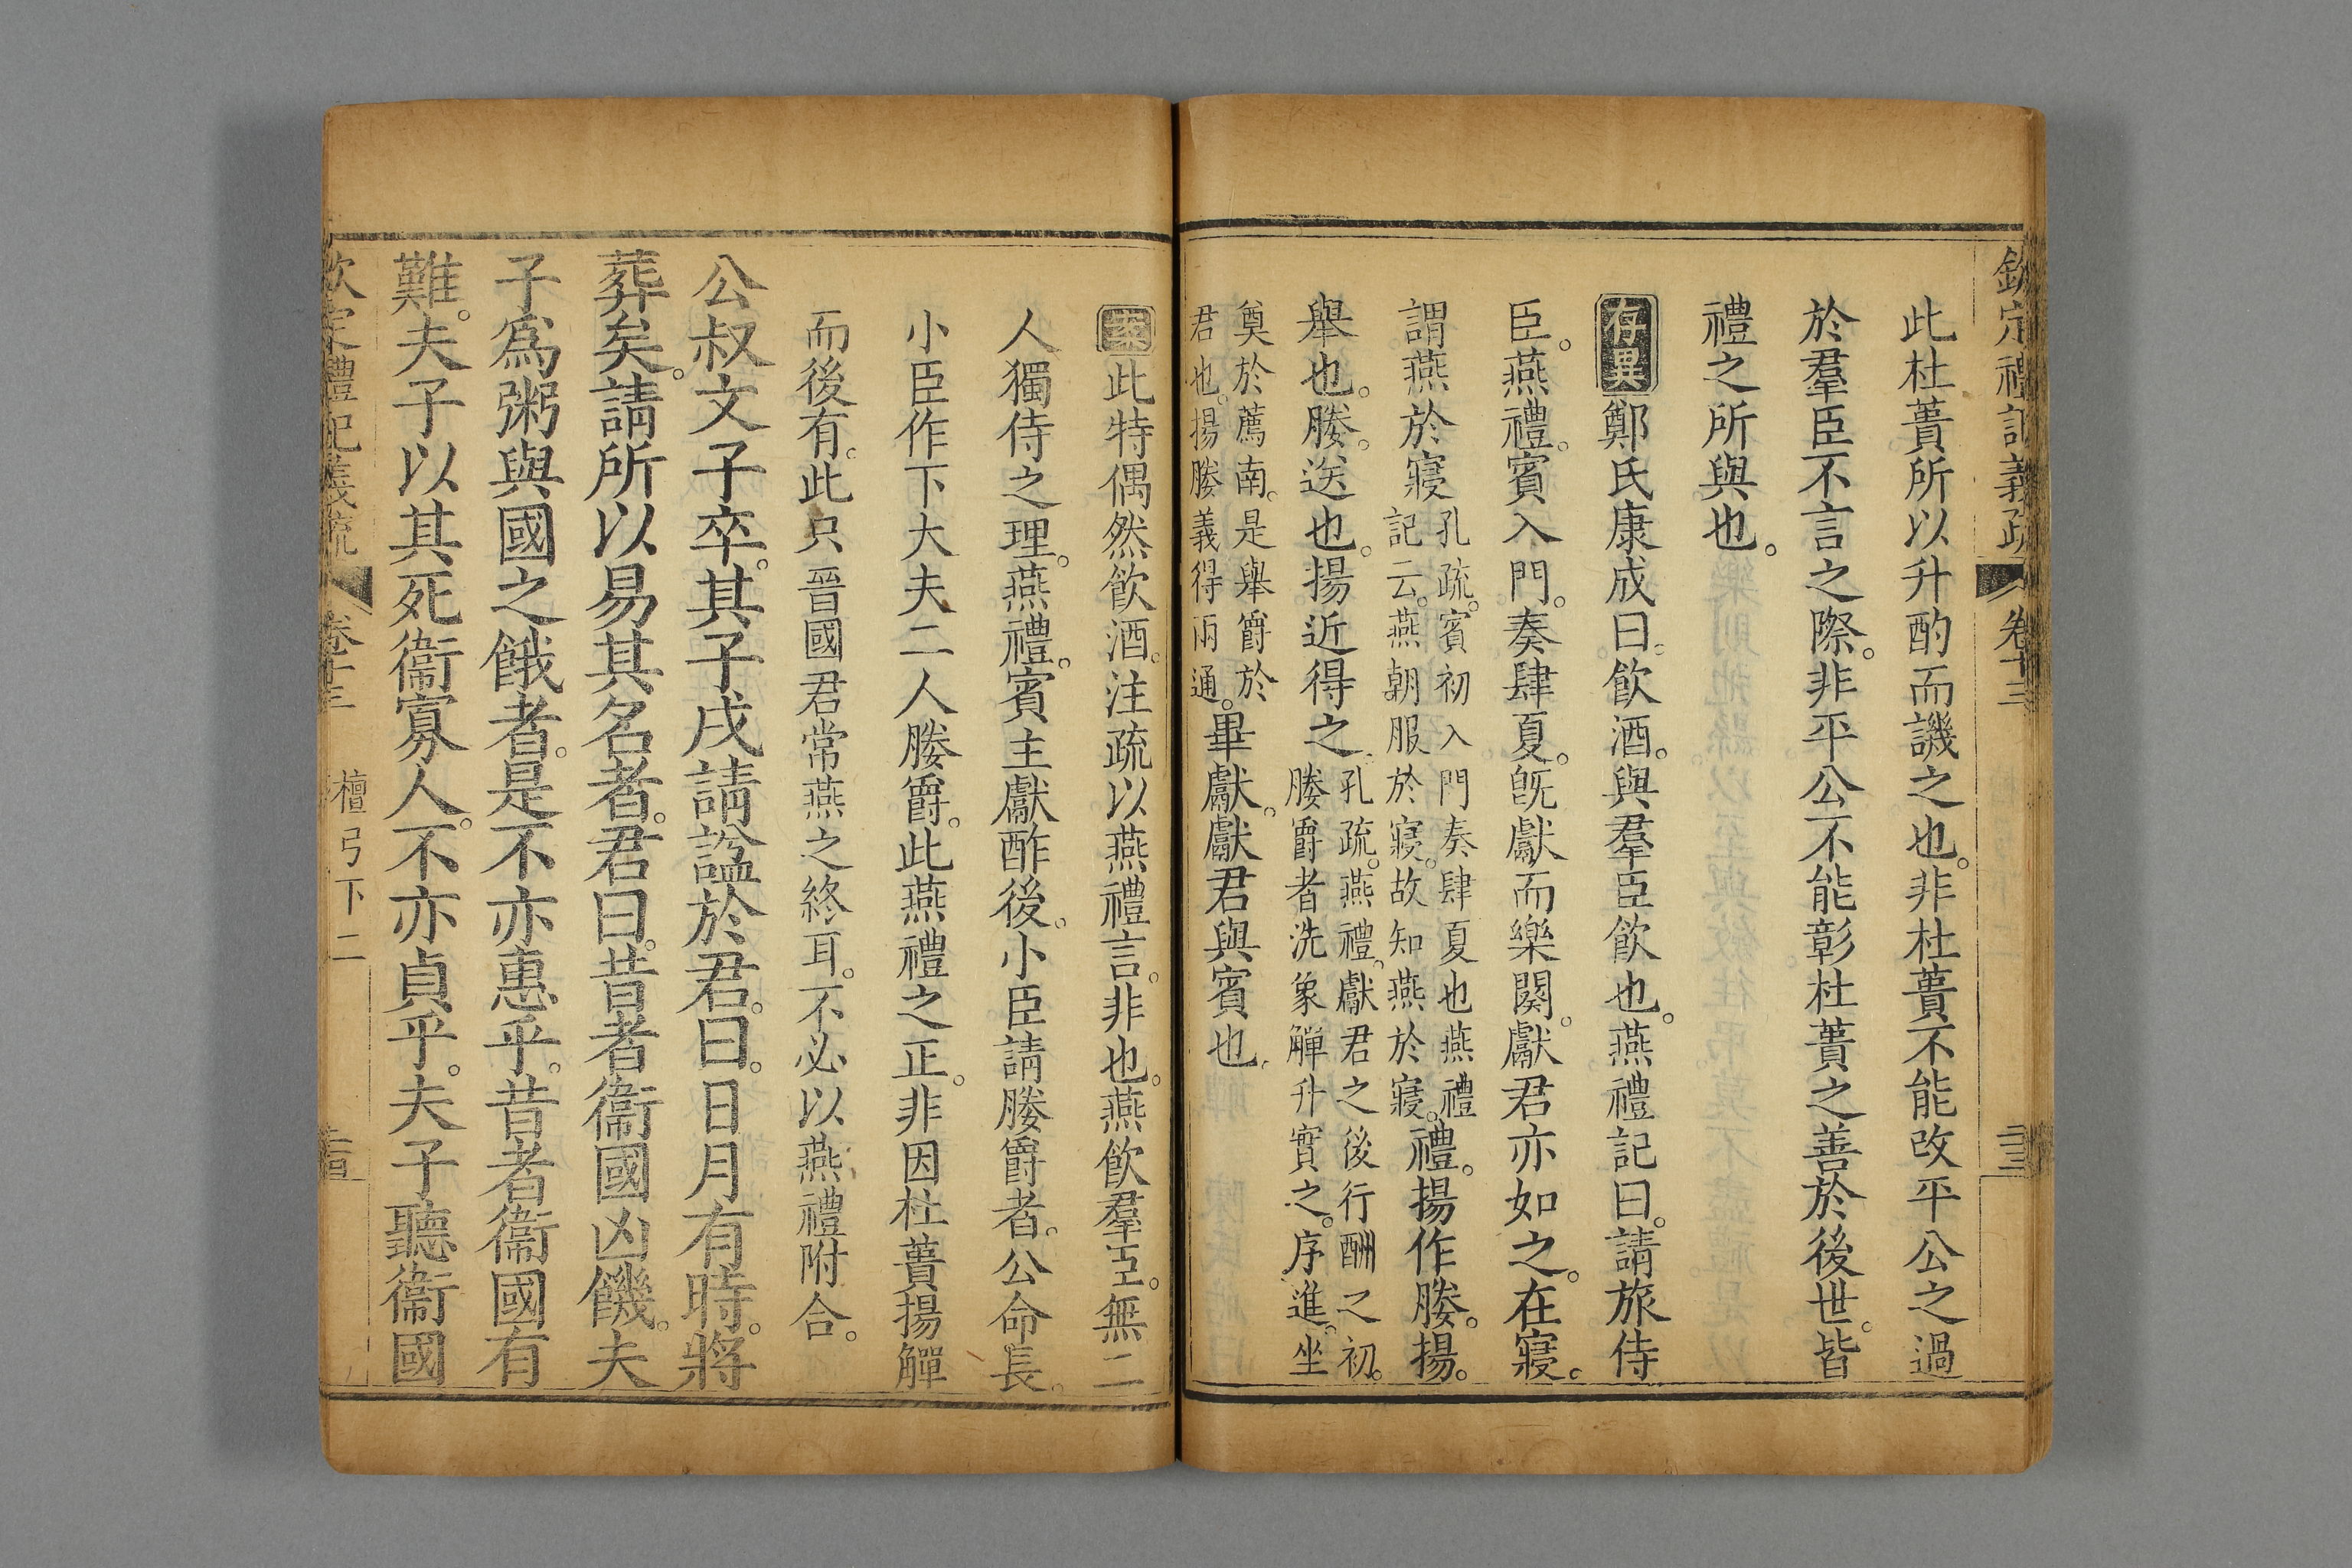 欽定禮記義疏 卷十三
此杜蕢所以升酌而譏之也。非杜蕢不能改平公之過
於羣臣不言之際。非平公不能彰杜蕢之善於後世。皆
禮之所與也。
存異鄭氏康成曰。飲酒。與羣臣飲也。燕禮記曰。請旅侍
臣。燕禮。賓入門。奏肆夏。旣獻而樂闋。獻君亦如之。在寢。
謂燕於寢
孔疏。賓初入門奏肆夏也燕禮
記云。燕朝服於寢。故知燕於寢。
禮。揚作媵。揚。
舉也。媵。送也。揚近得之。
孔疏。燕禮。獻君之後行酬之初。
媵爵者洗象觶升實之。序進。坐
奠於薦南。是舉爵於
君也。揚媵義得兩通。
畢獻。獻君與賓也。
案此特偶然飲酒。注疏以燕禮言。非也。燕飲羣臣。無二
人獨侍之理。燕禮。賓主獻酢後。小臣請媵爵者。公命長。
小臣作下大夫二人媵爵。此燕禮之正。非因杜蕢揚觶
而後有。此只晉國君常燕之終耳。不必以燕禮附合。
公叔文子卒。其子戌請諡於君。曰。日月有時。將
葬矣。請所以易其名者。君曰。昔者衞國凶饑。夫
子爲粥與國之餓者。是不亦惠乎。昔者衞國有
難。夫子以其死衞寡人。不亦貞乎。夫子聽衞國
欽定禮記義疏 卷十三 檀弓下二